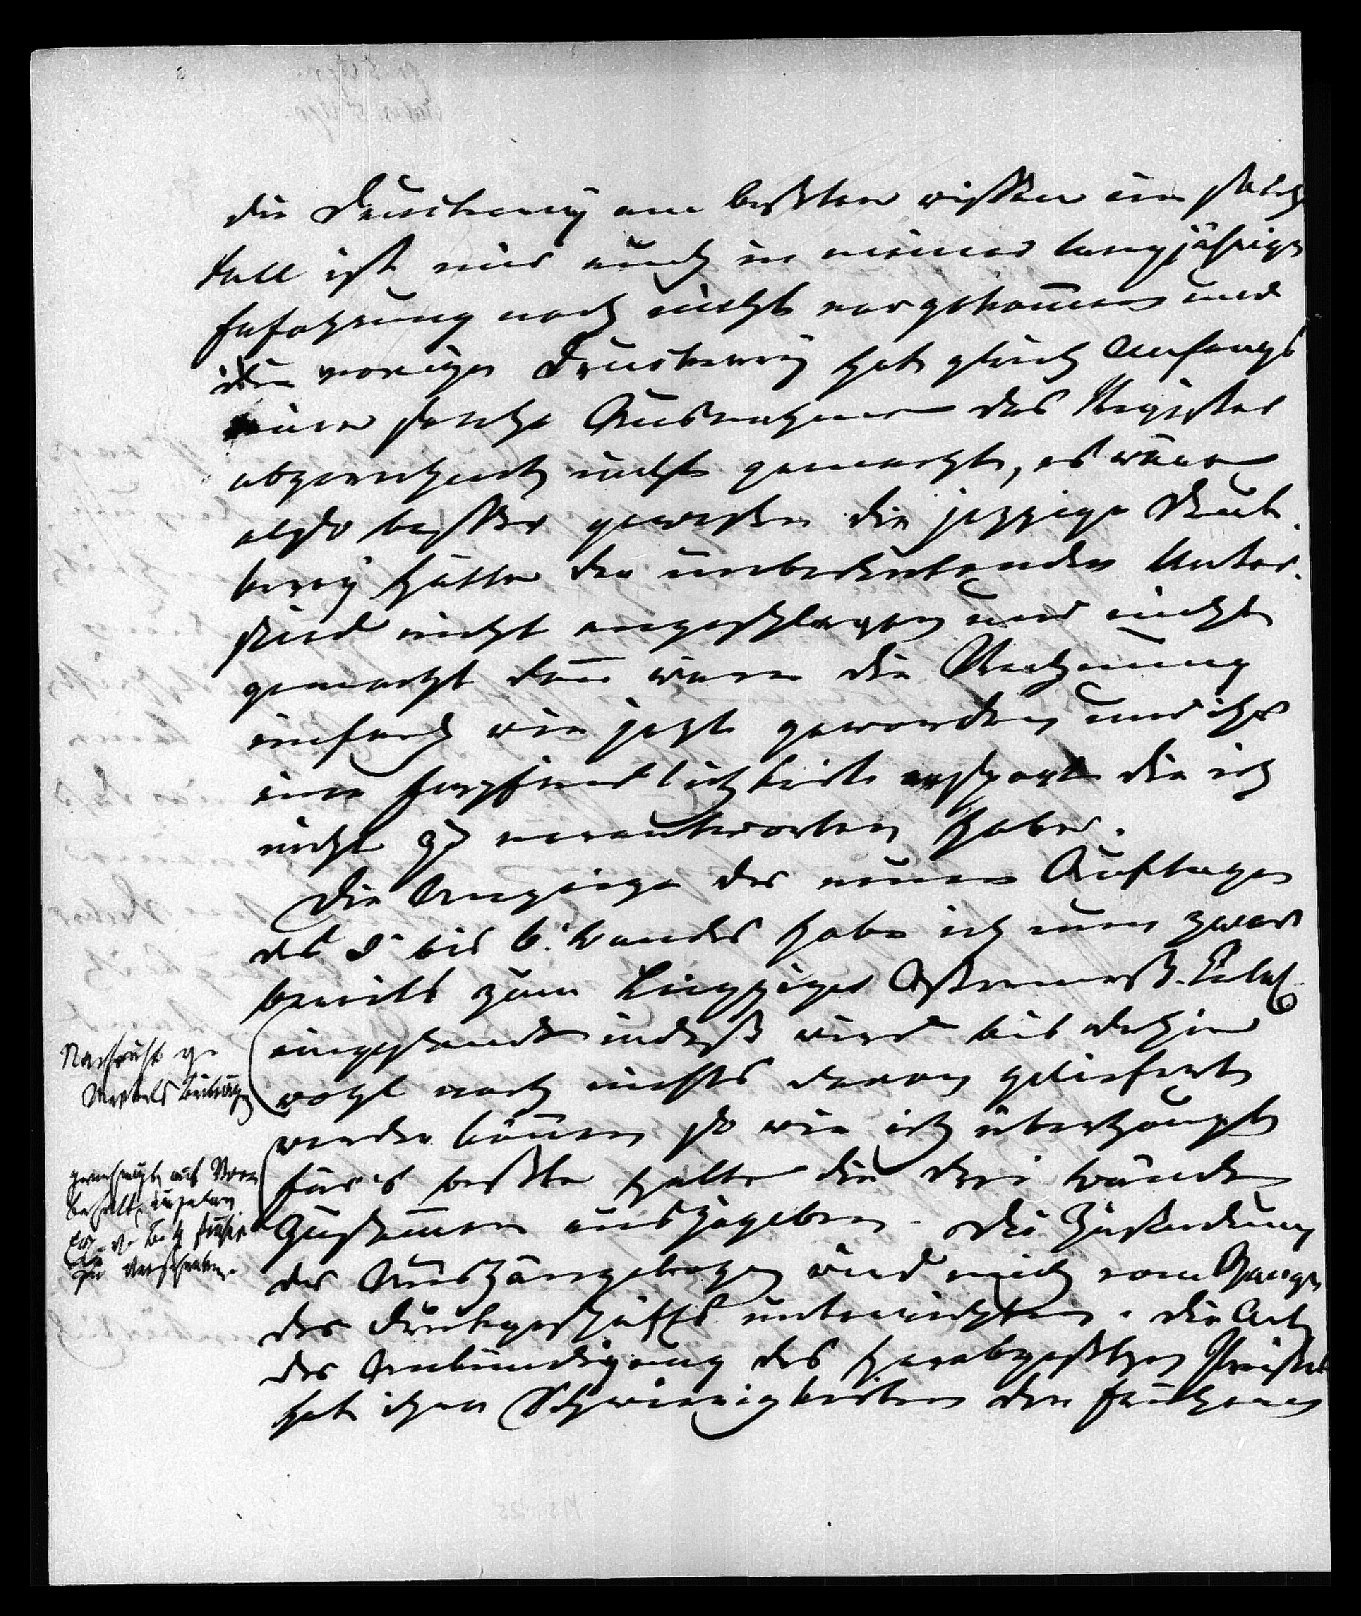 die Druckerey am beßten wissen ein solcher
Fall ist mir auch in meiner langjährigen
Erfahrung noch nicht vorgekommen und
die vorige Druckerey hat gleich Anfangs
eine solche Ausnahme des Register
abgerechnet nicht gemacht, es wäre
also besser gewesen die jezzige Druk-
kerey hätte den unbedeutenden Unter-
schied nicht angeschlagen und nicht
gemacht dann wäre die Rechnung
einfach wie jetzt geworden und ihr
eine Empfindlichkeit erspart die ich
nicht zu verantworten habe.
Die Anzeige der neuen Auflage
des 5 bis 6. Bandes habe ich nun zwar
bereits zum Leipziger Ostermeß-Catal.
eingesandt indeß wird bis dahin
wohl noch nichts davon geliefert
werden können so wie ich überhaupt
für's beßte halte die drei Bände
zusammen auszugeben. Die Zusendung
der Aushängebogen wird mich vom Gange
des Druckgeschäfts unterrichten. Die Art
der Ankündigung des herabgesetzten Preises
hat ihre Schwierigkeiten den früheren
Nachricht
Beiträge
genehmigt mit Vor-
behalt
zu verschieben.